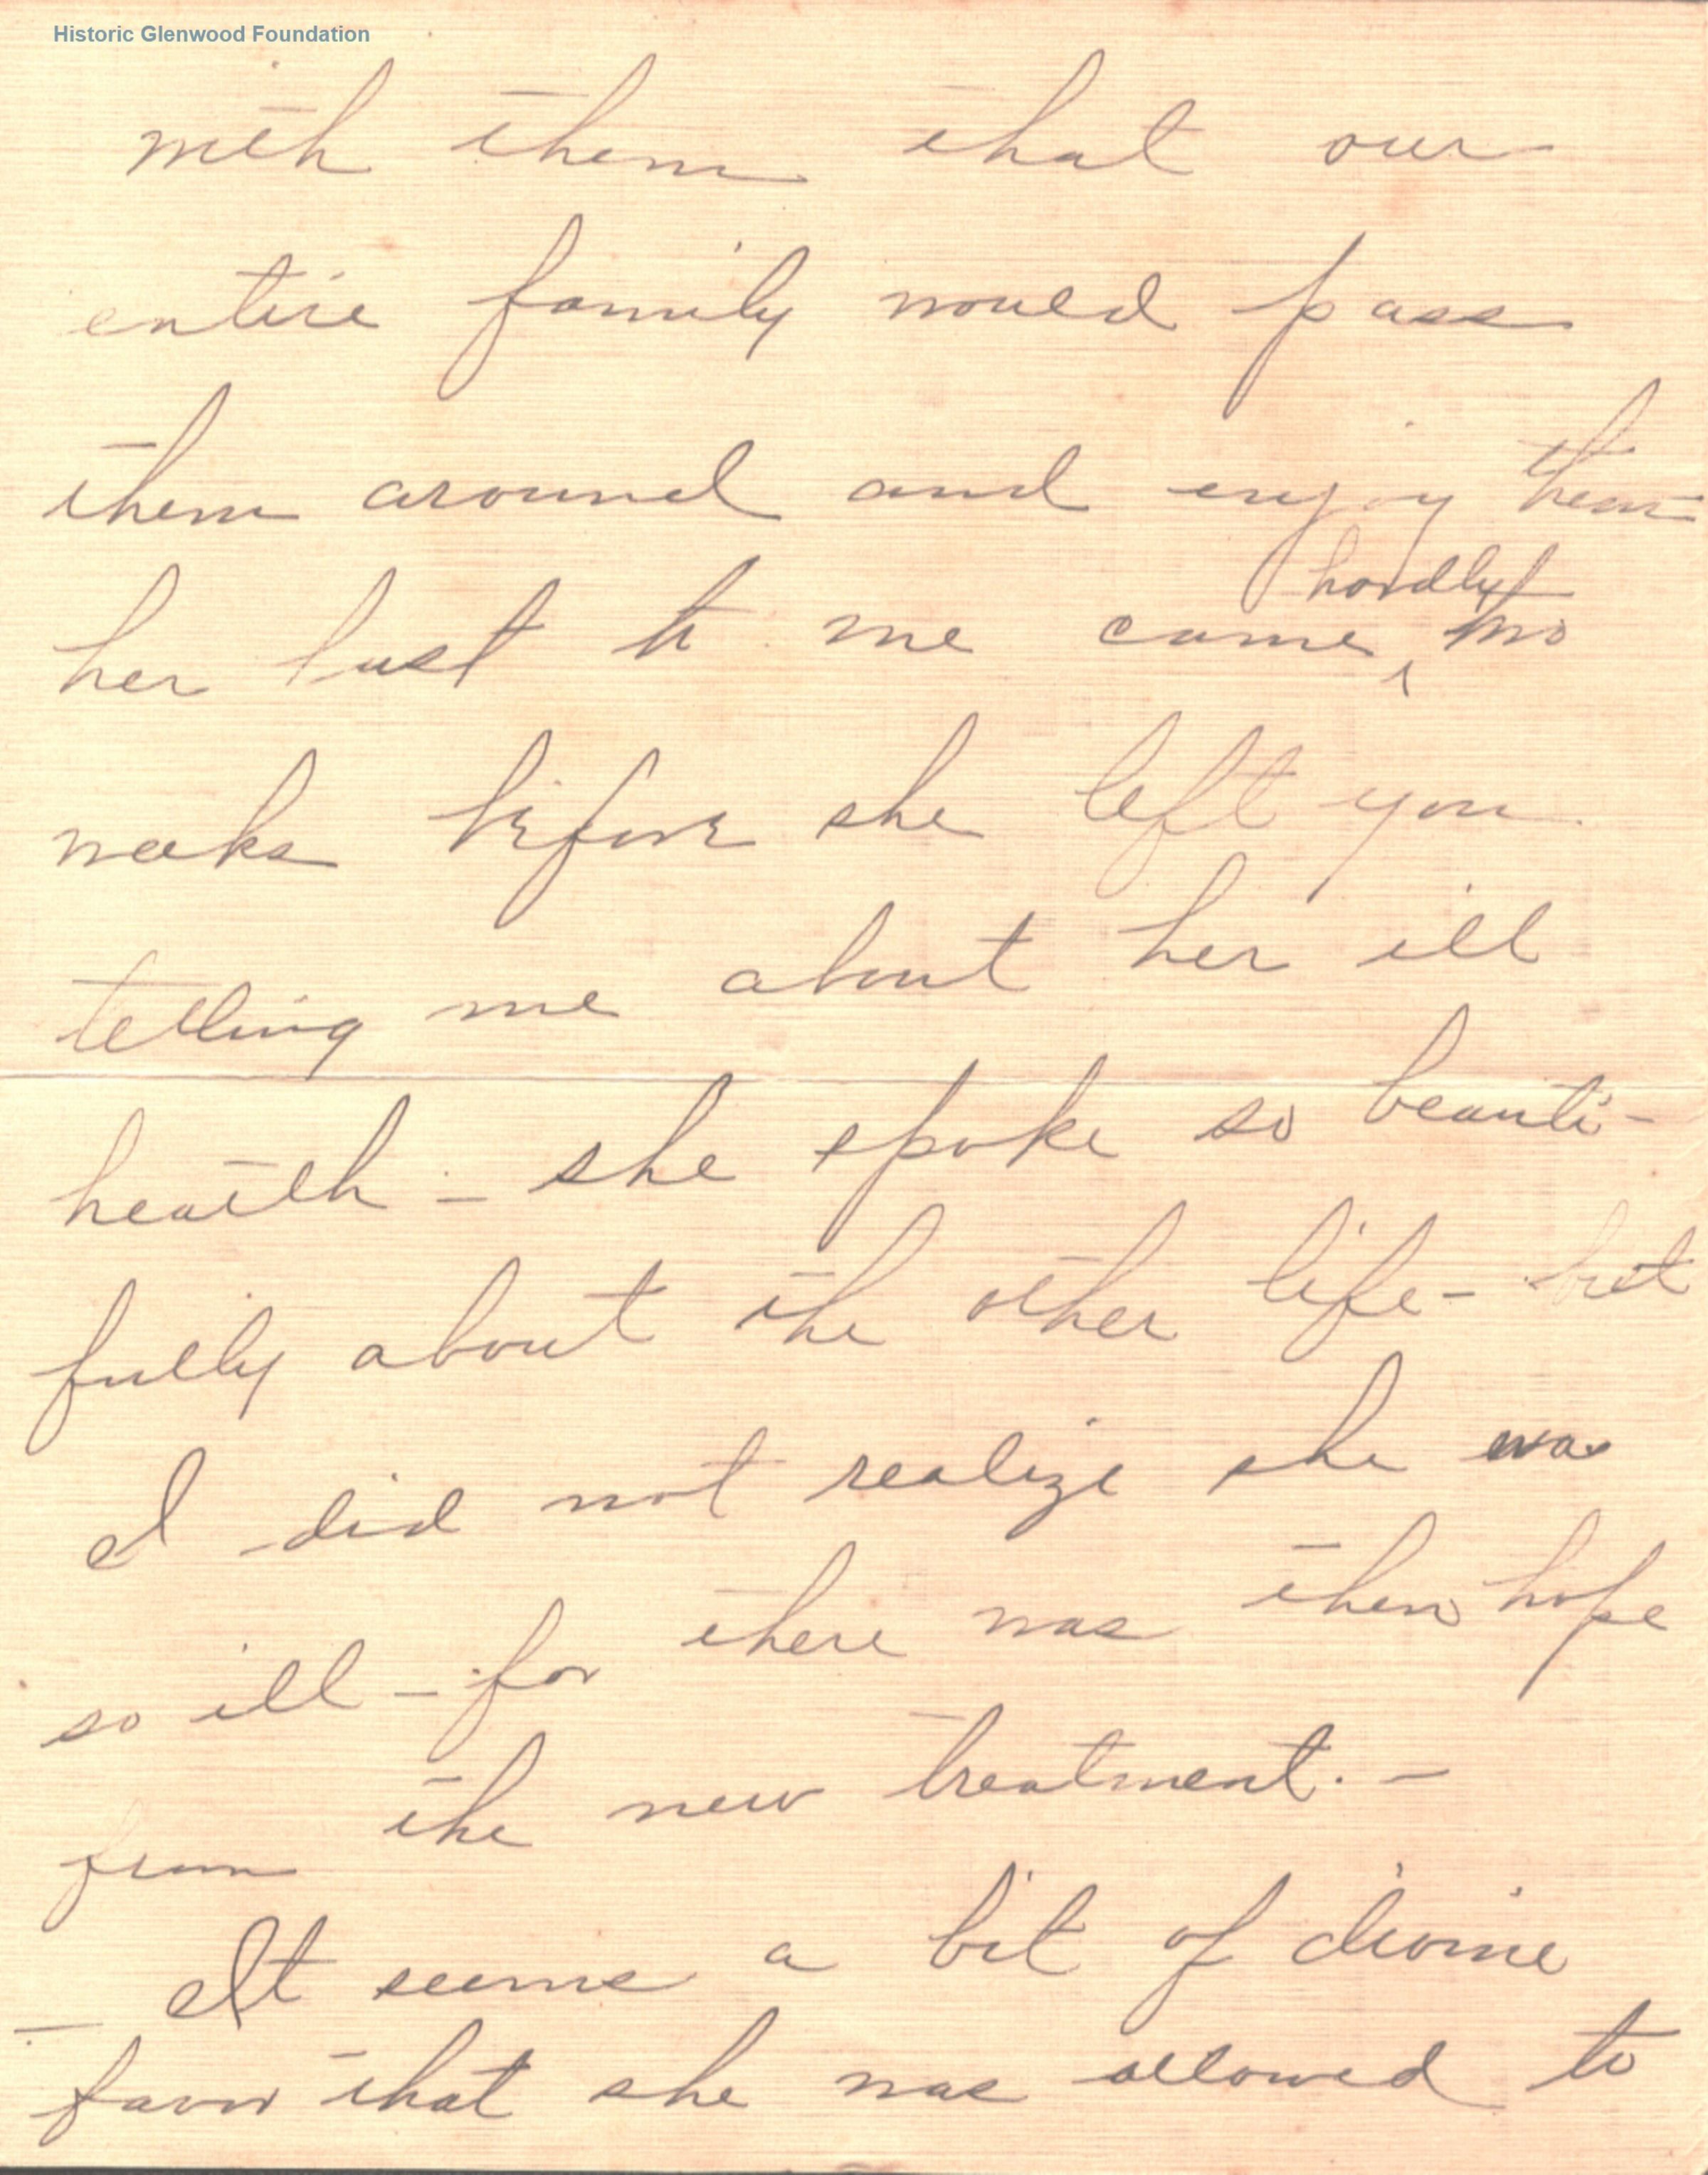 Historic Glenwood Foundation
with them that our
entire family would pass
them around and enjoy them
her last to me came hardly two
weeks before she left you
telling me about her ill
health - she spoke so beauti-
fully about the other life - but
I did not realize she was
so ill - for there was then hope
from the new treatment. -
It seems a bit of divine
favor that she was allowed to